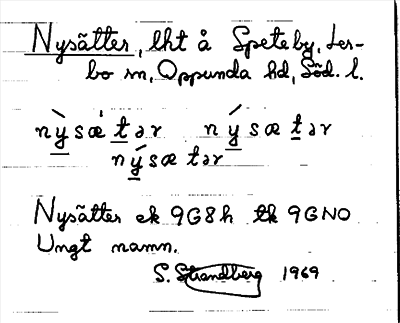 Nysätter, lht å Speteby, Ler-
bo sn, Oppunda hd, Söd. l.
nỳsæ̀tər  nýsætər
nýsætər
Nysätter ek 9G8h tk 9GNO
Ungt namn.
S. Strandberg 1969